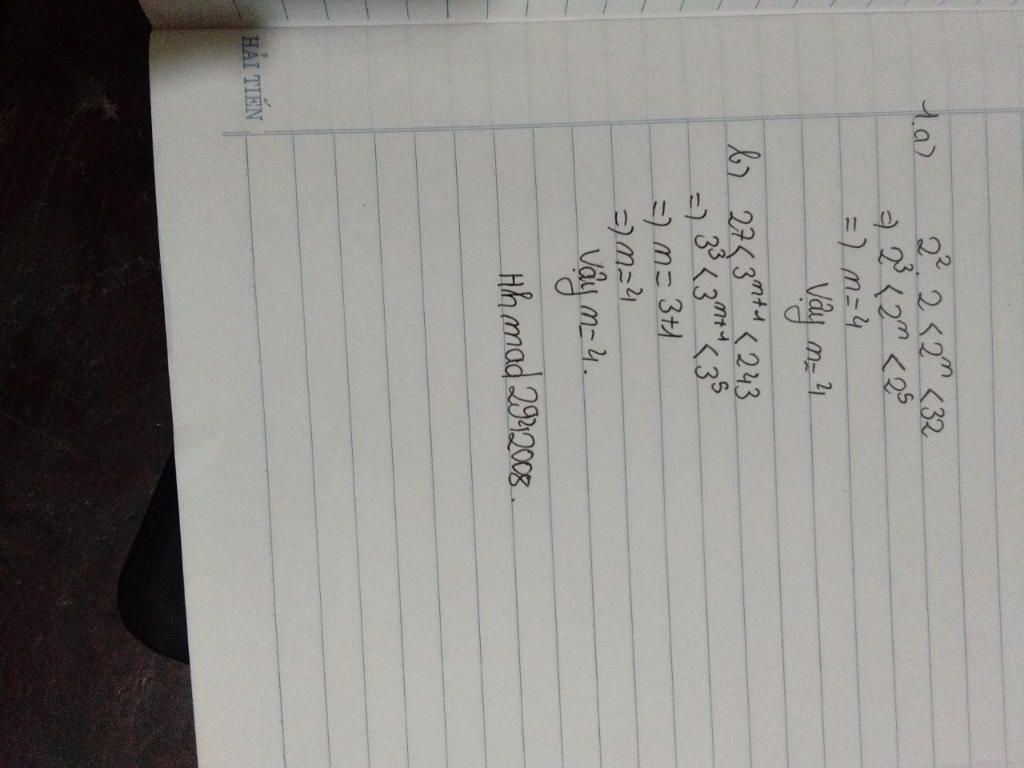 HẢI TIẾN
1.a) 2² . 2 < 2ⁿ < 32
=) 2³ < 2ⁿ < 2⁵
=) n = 4
Vậy n = 4
b) 27 < 3ⁿ⁺¹ < 243
=) 3³ < 3ⁿ⁺¹ < 3⁵
=) n = 3+1
=) n = 4
Vậy n = 4.